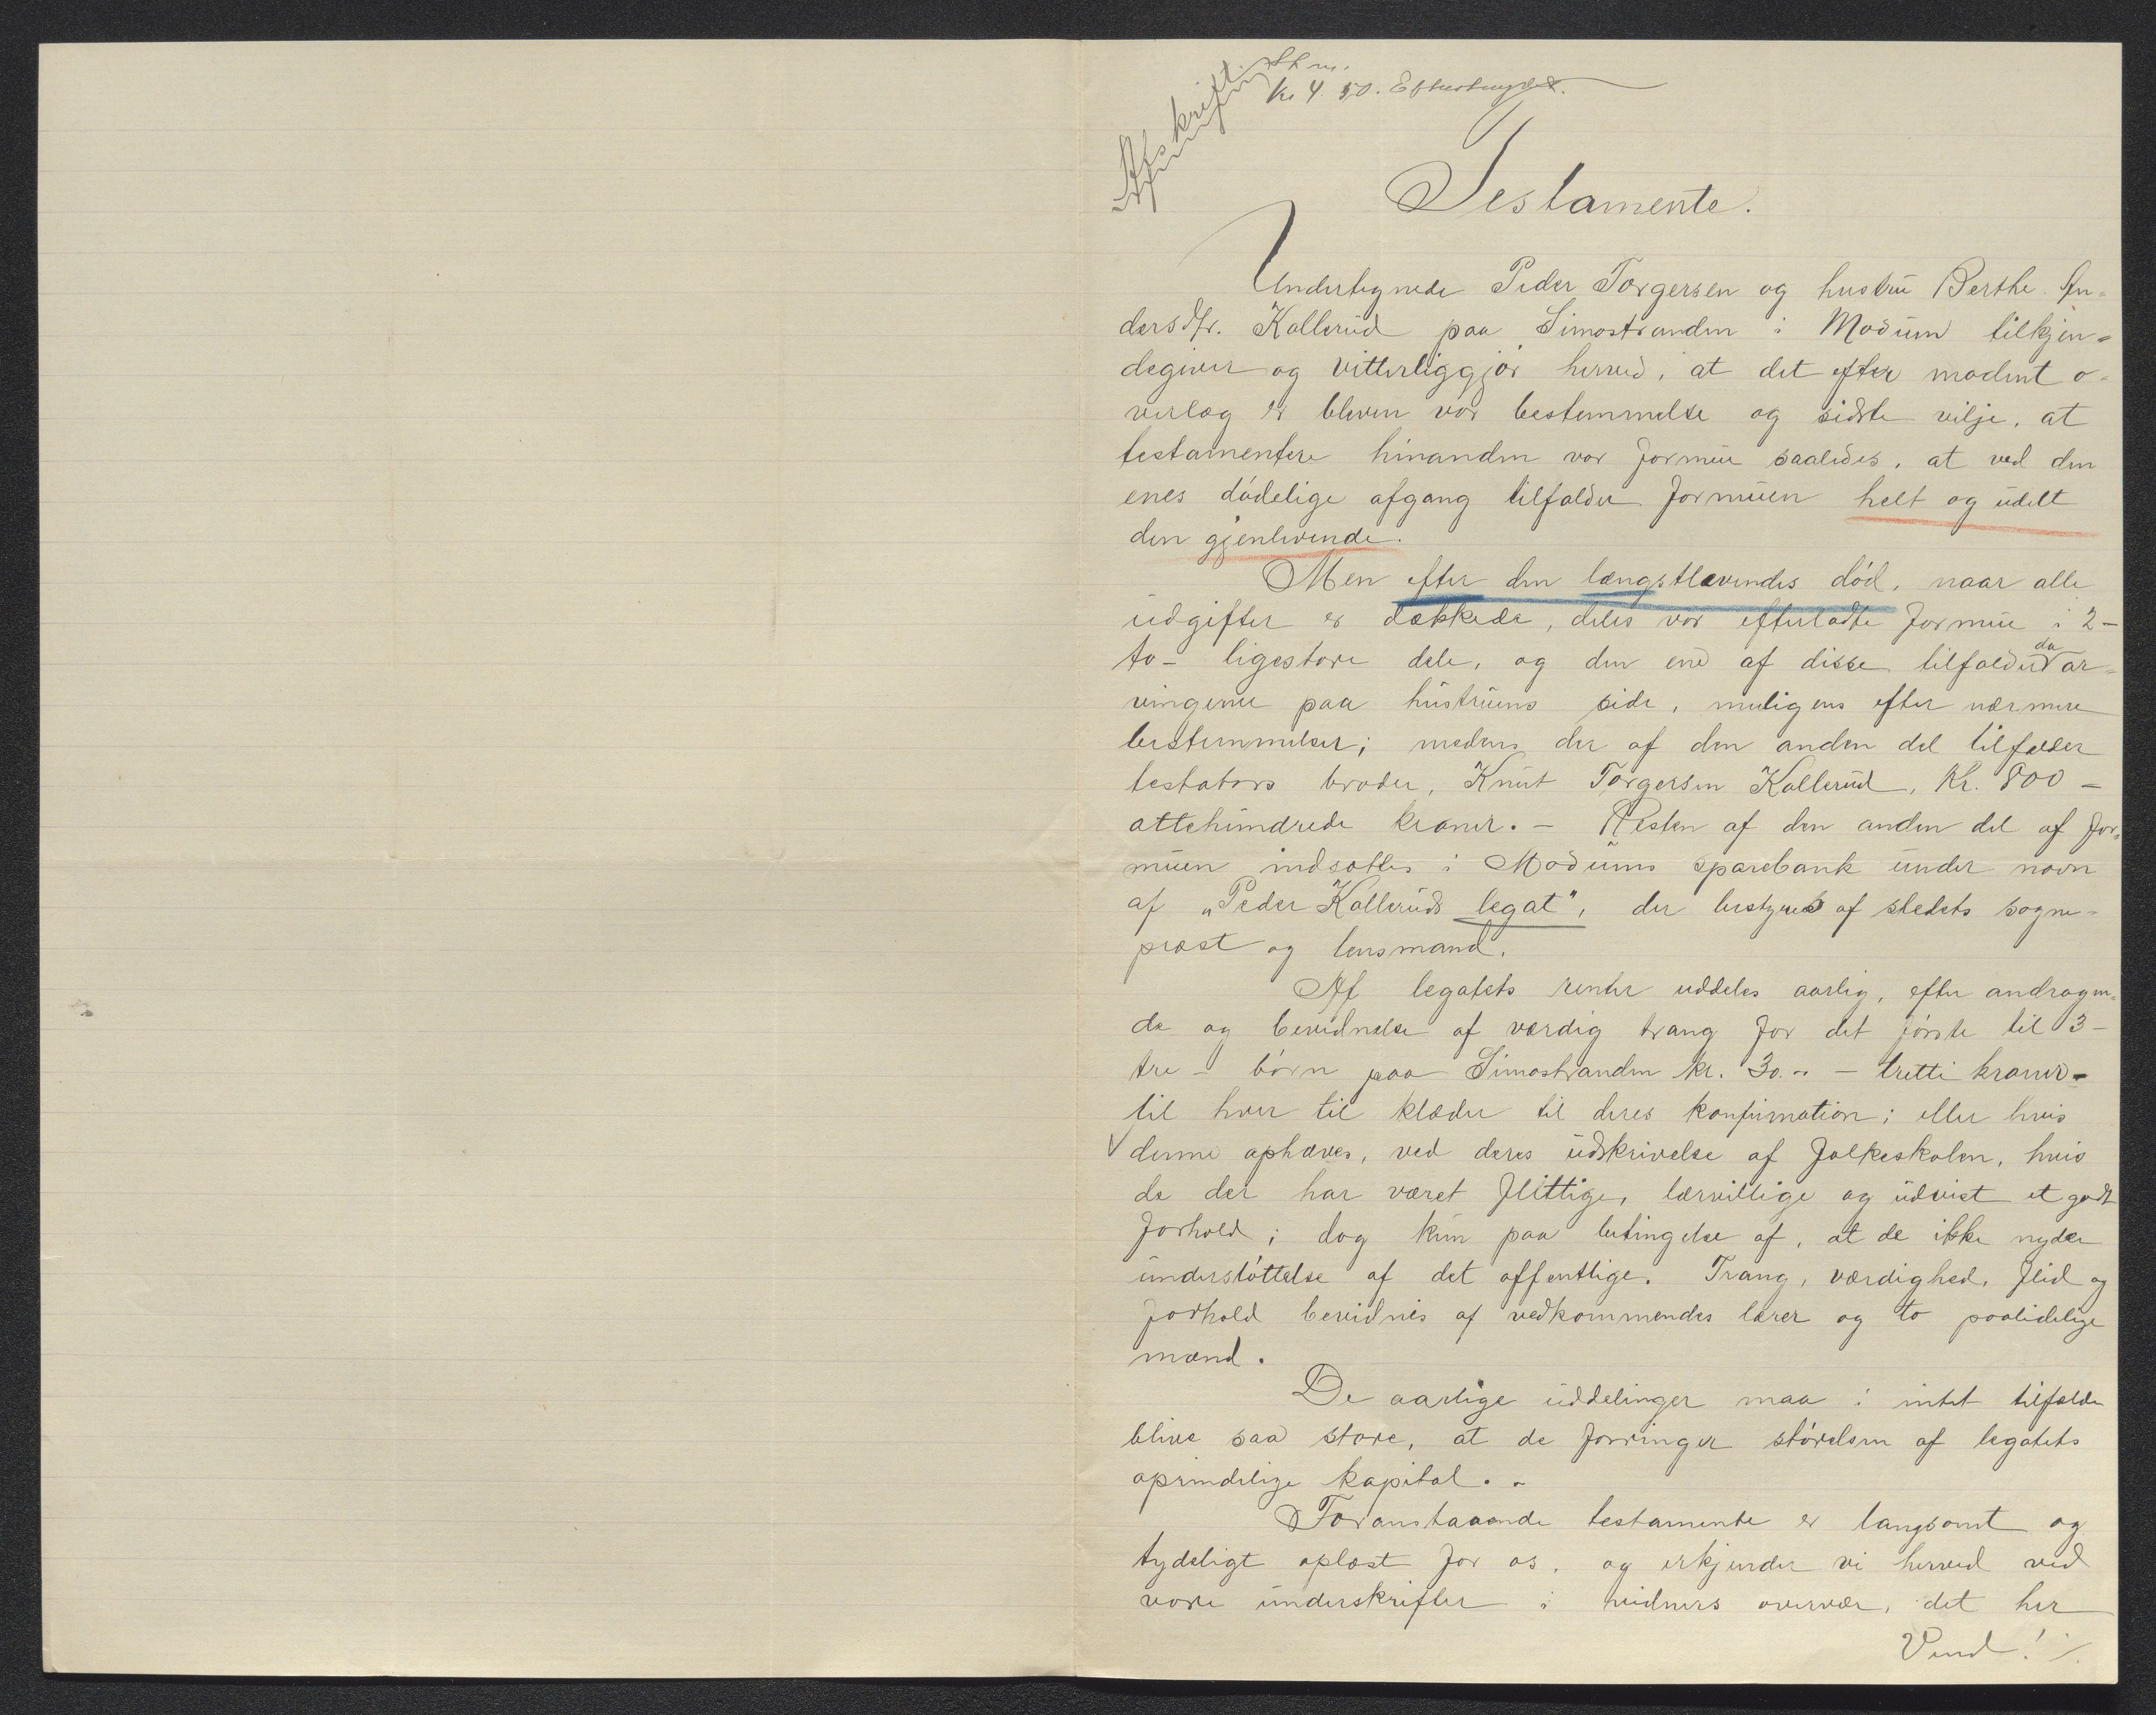 Afskrift.
St. m.
Kr 4.50. Efterbetyget.
Testamente.
Undertegnede Peder Torgersen og hustru Berthe An-
dersdtr. Kallerud paa Simostranden i Modum tilkjen-
degiver og vitterliggjør herved, at det efter modent o-
verlæg er bleven vor bestemmelse og sidste vilje, at
testamentere hinanden vor formue saaledes, at ved den
enes dødelige afgang tilfalder formuen helt og udelt
den gjenlevende.
Men efter den længstlævendes død, naar alle
udgifter er dækkede, deles vor efterladte formue i 2-
to- ligestore dele, og den ene af disse tilfalder da ar-
vingerne paa hustruens side, muligens efter nærmere
bestemmelser; medens der af den anden del tilfalder
testators broder, Knut Torgersen Kallerud, Kr. 800 -
ottehundrede kroner. - Resten af den anden del af for-
muen indsættes i Modums sparebank under navn
af "Peder Kalleruds legat", der bestyres af stedets sogne-
præst og lensmand.
Af legatets renter uddeles aarlig, efter andragen-
de og bevidnelse af værdig trang for det første til 3-
tre - børn paa Simostranden kr. 30.- - tretti kroner -
til hver til klæder til deres konfirmation; eller hvis
denne ophæves, ved deres udskrivelse af folkeskolen, hvis
de der har været flittige, lærvillige og udvist et godt
forhold; dog kun paa betingelse af, at de ikke nyder
understøttelse af det offentlige. Trang, værdighed, flid og
forhold bevidnes af vedkommendes lærer og to paalidelige
mænd.
De aarlige uddelinger maa i intet tilfælde
blive saa store, at de forringer størelsen af legatets
oprindelige kapital. -
Foranstaaende testamente er langsomt og
tydeligt oplæst for os, og erkjender vi herved ved
vore underskrifter i vidners overvær, det her
Vend! ./.